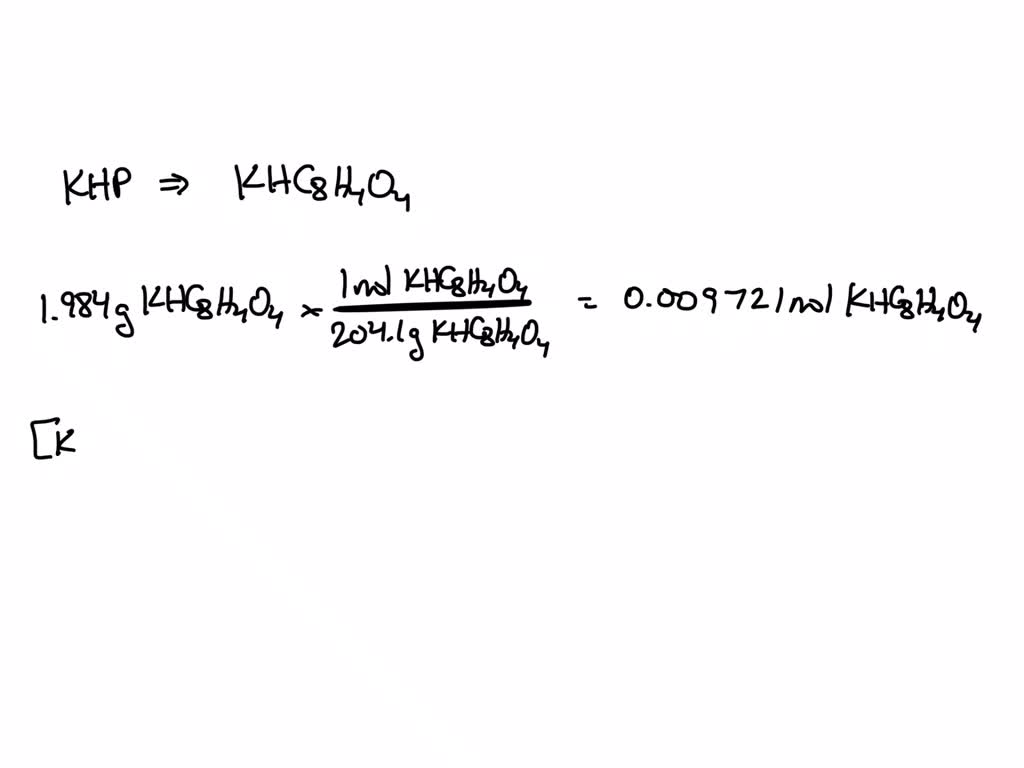 KHP ⇒ KHC₈H₄O₄
1.984g KHC₈H₄O₄ × 1 mol KHC₈H₄O₄ / 204.1g KHC₈H₄O₄ = 0.009721 mol KHC₈H₄O₄
[K